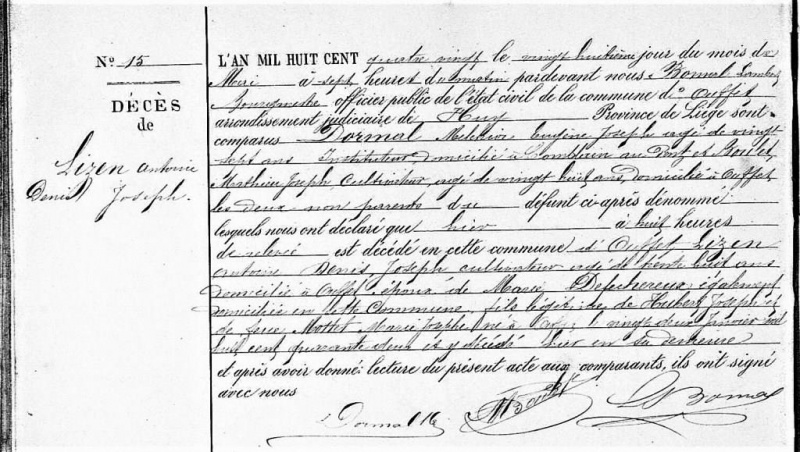 N° 15
DÉCÈS
de
Lizen Antoine
Denis Joseph.
L'AN MIL HUIT CENT quatre vingt le vingt huitième jour du mois de
Mai à sept heures du matin pardevant nous Bonmal Lambert
Bourgmestre officier public de l'état civil de la commune d' Ouffet
arrondissement judiciaire de Huy Province de Liège sont
comparus Dormal Melchior Eugène Joseph agé de vingt
sept ans Instituteur domicilié à Comblain au Pont et
Mathieu Joseph Cultivateur, agé de vingt huit ans, domicilié à Ouffet
les deux non parents du défunt ci-après dénommé
lesquels nous ont déclaré que hier à huit heures
de relevé est décédé en cette commune d' Ouffet Lizen
Antoine Denis, Joseph cultivateur agé de trente huit ans
domicilié à Ouffet époux de Marie Defechereux également
domiciliée en cette Commune, fils légitime de Hubert Joseph et
de feue Mottet Marie Josephe né à vingt deux Janvier mil
huit cent quarante deux et y décédé hier en sa demeure
et après avoir donné lecture du présent acte aux comparants, ils ont signé
avec nous
Dormal M.